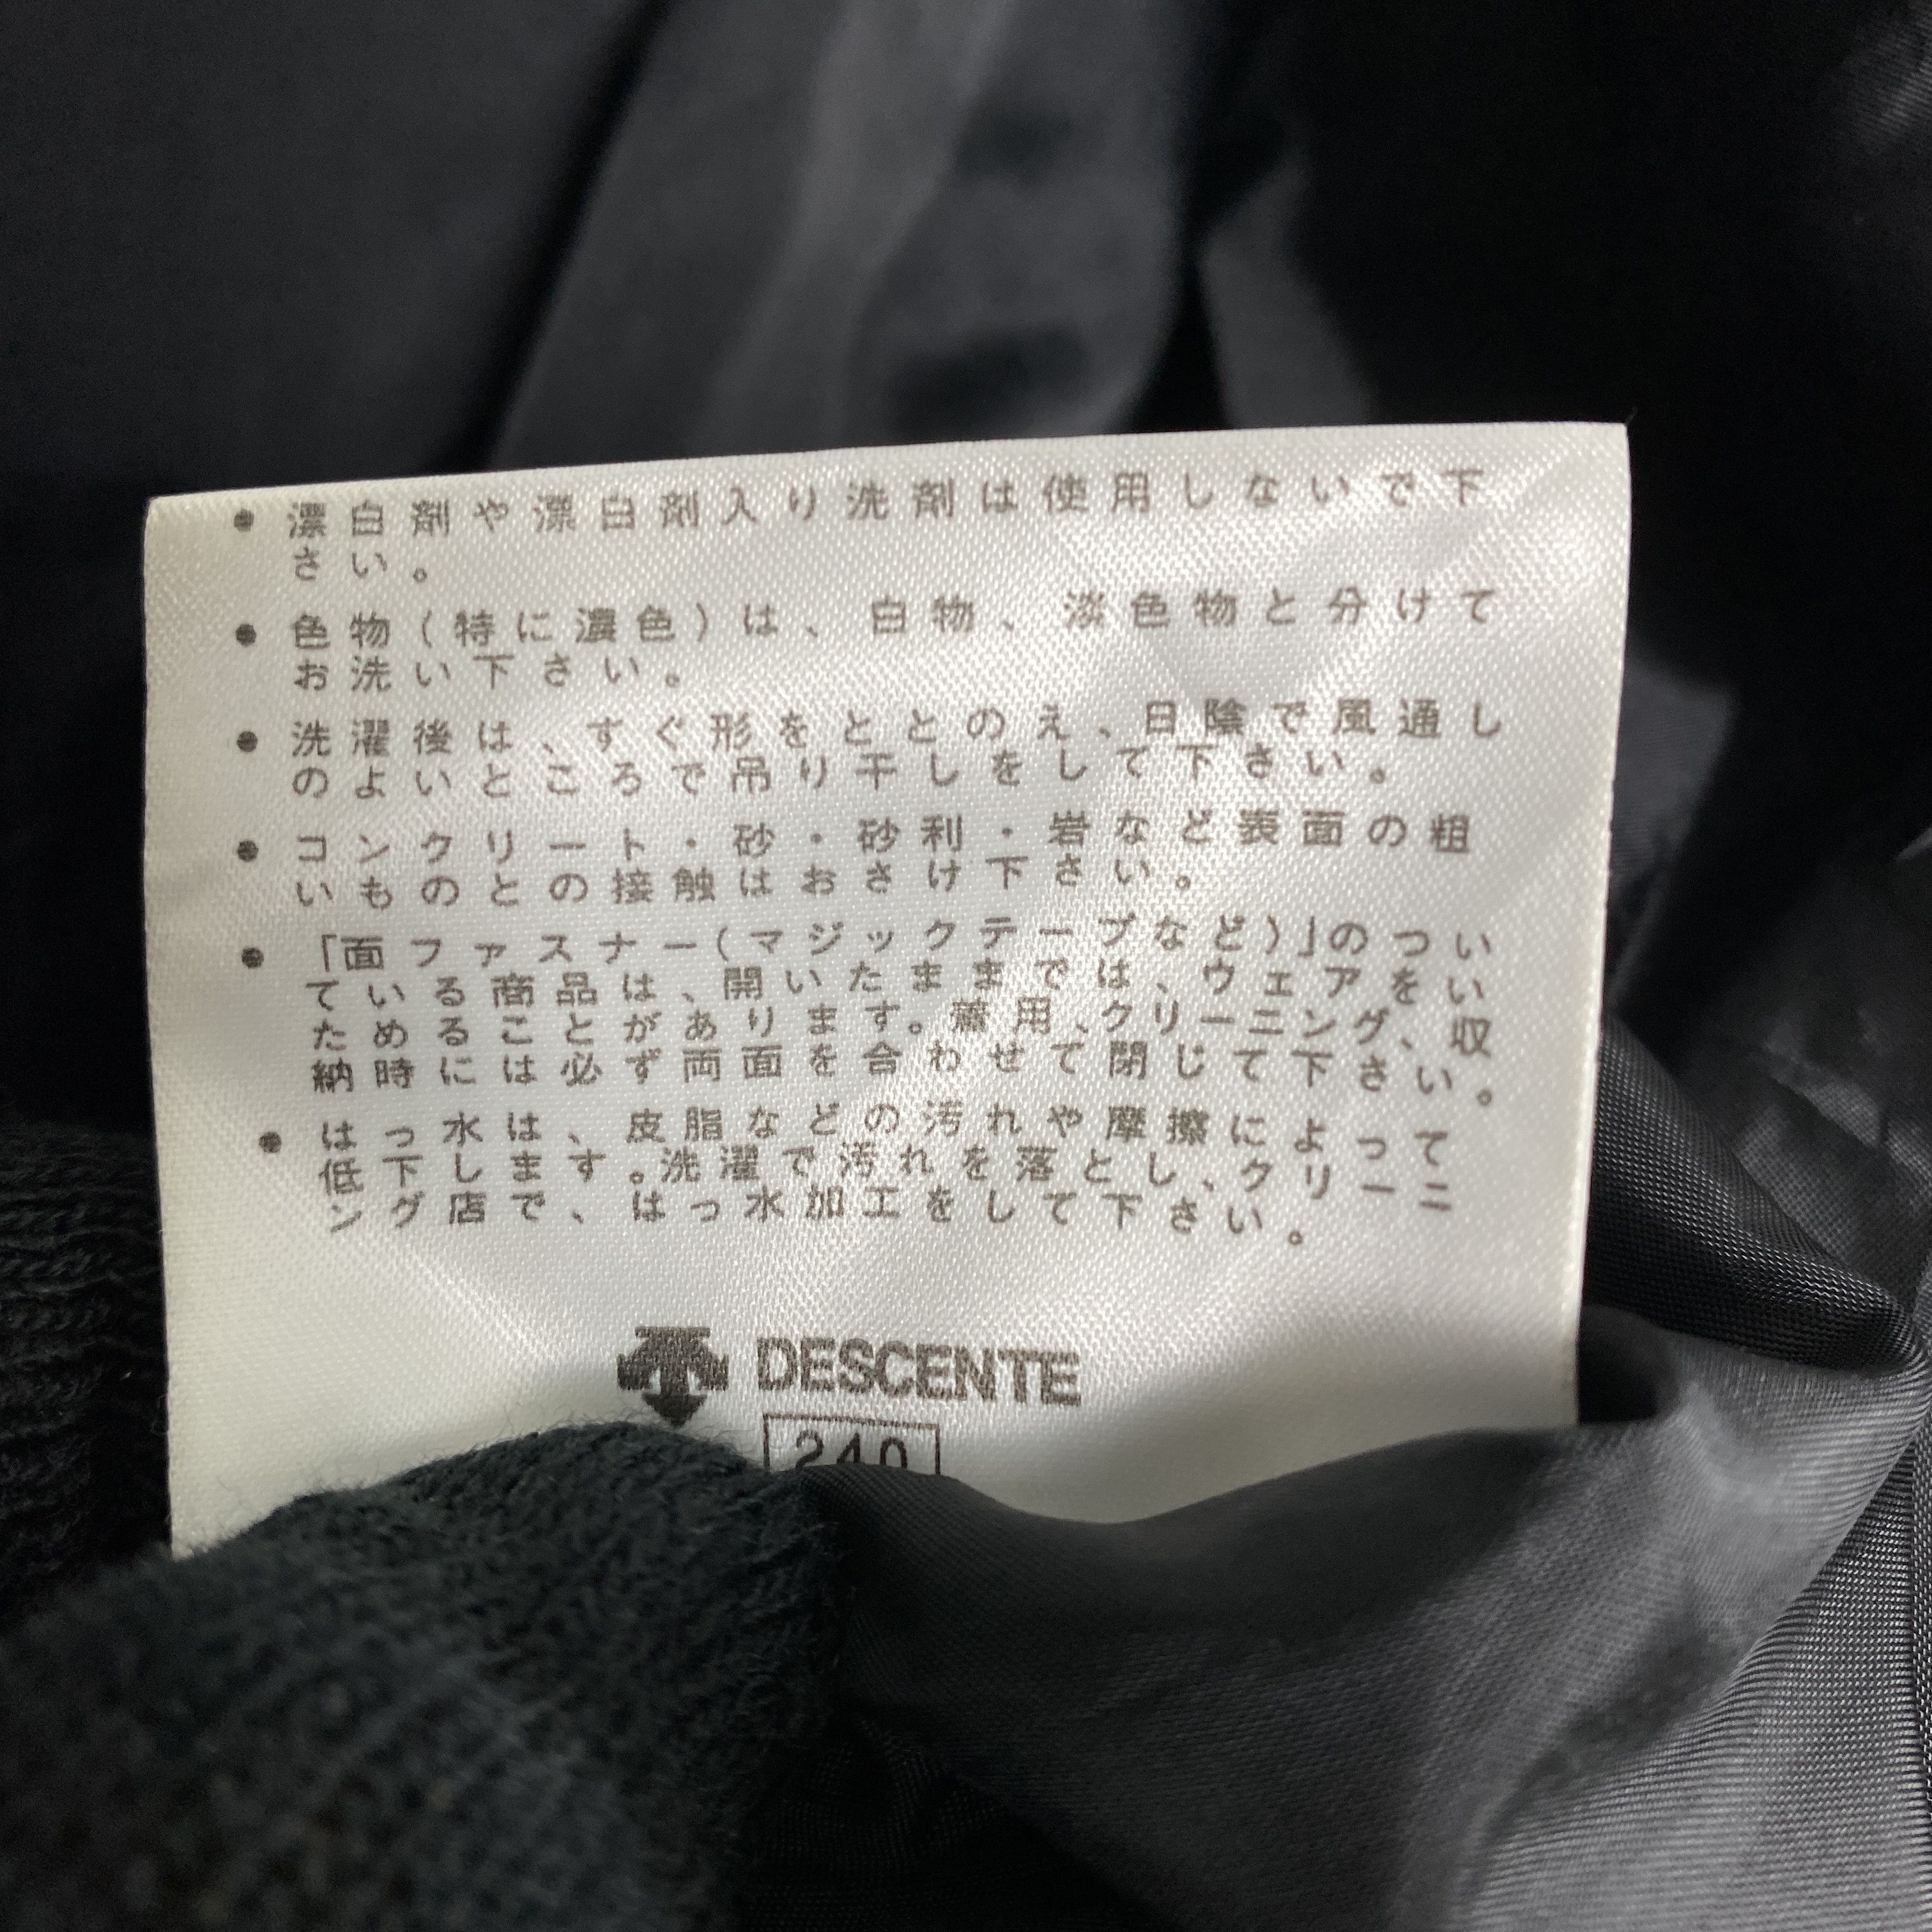 ● 漂白剤や漂白剤入り洗剤は使用しないで下
さい。
● 色物(特に濃色)は、白物、淡色物と分けて
お洗い下さい。
● 洗濯後は、すぐ形をととのえ、日陰で風通し
のよいところで吊り干しをして下さい。
● コンクリート・砂・砂利・岩など表面の粗
いものとの接触はおさけ下さい。
● 「面ファスナー(マジックテープなど)」のつい
ている商品は、開いたままでは、ウェアをい
ためることがあります。着用、クリーニング、収
納時には必ず両面を合わせて閉じて下さい。
● はっ水は、皮脂などの汚れや摩擦によって
低下します。洗濯で汚れを落とし、クリーニ
ング店で、はっ水加工をして下さい。
DESCENTE
240